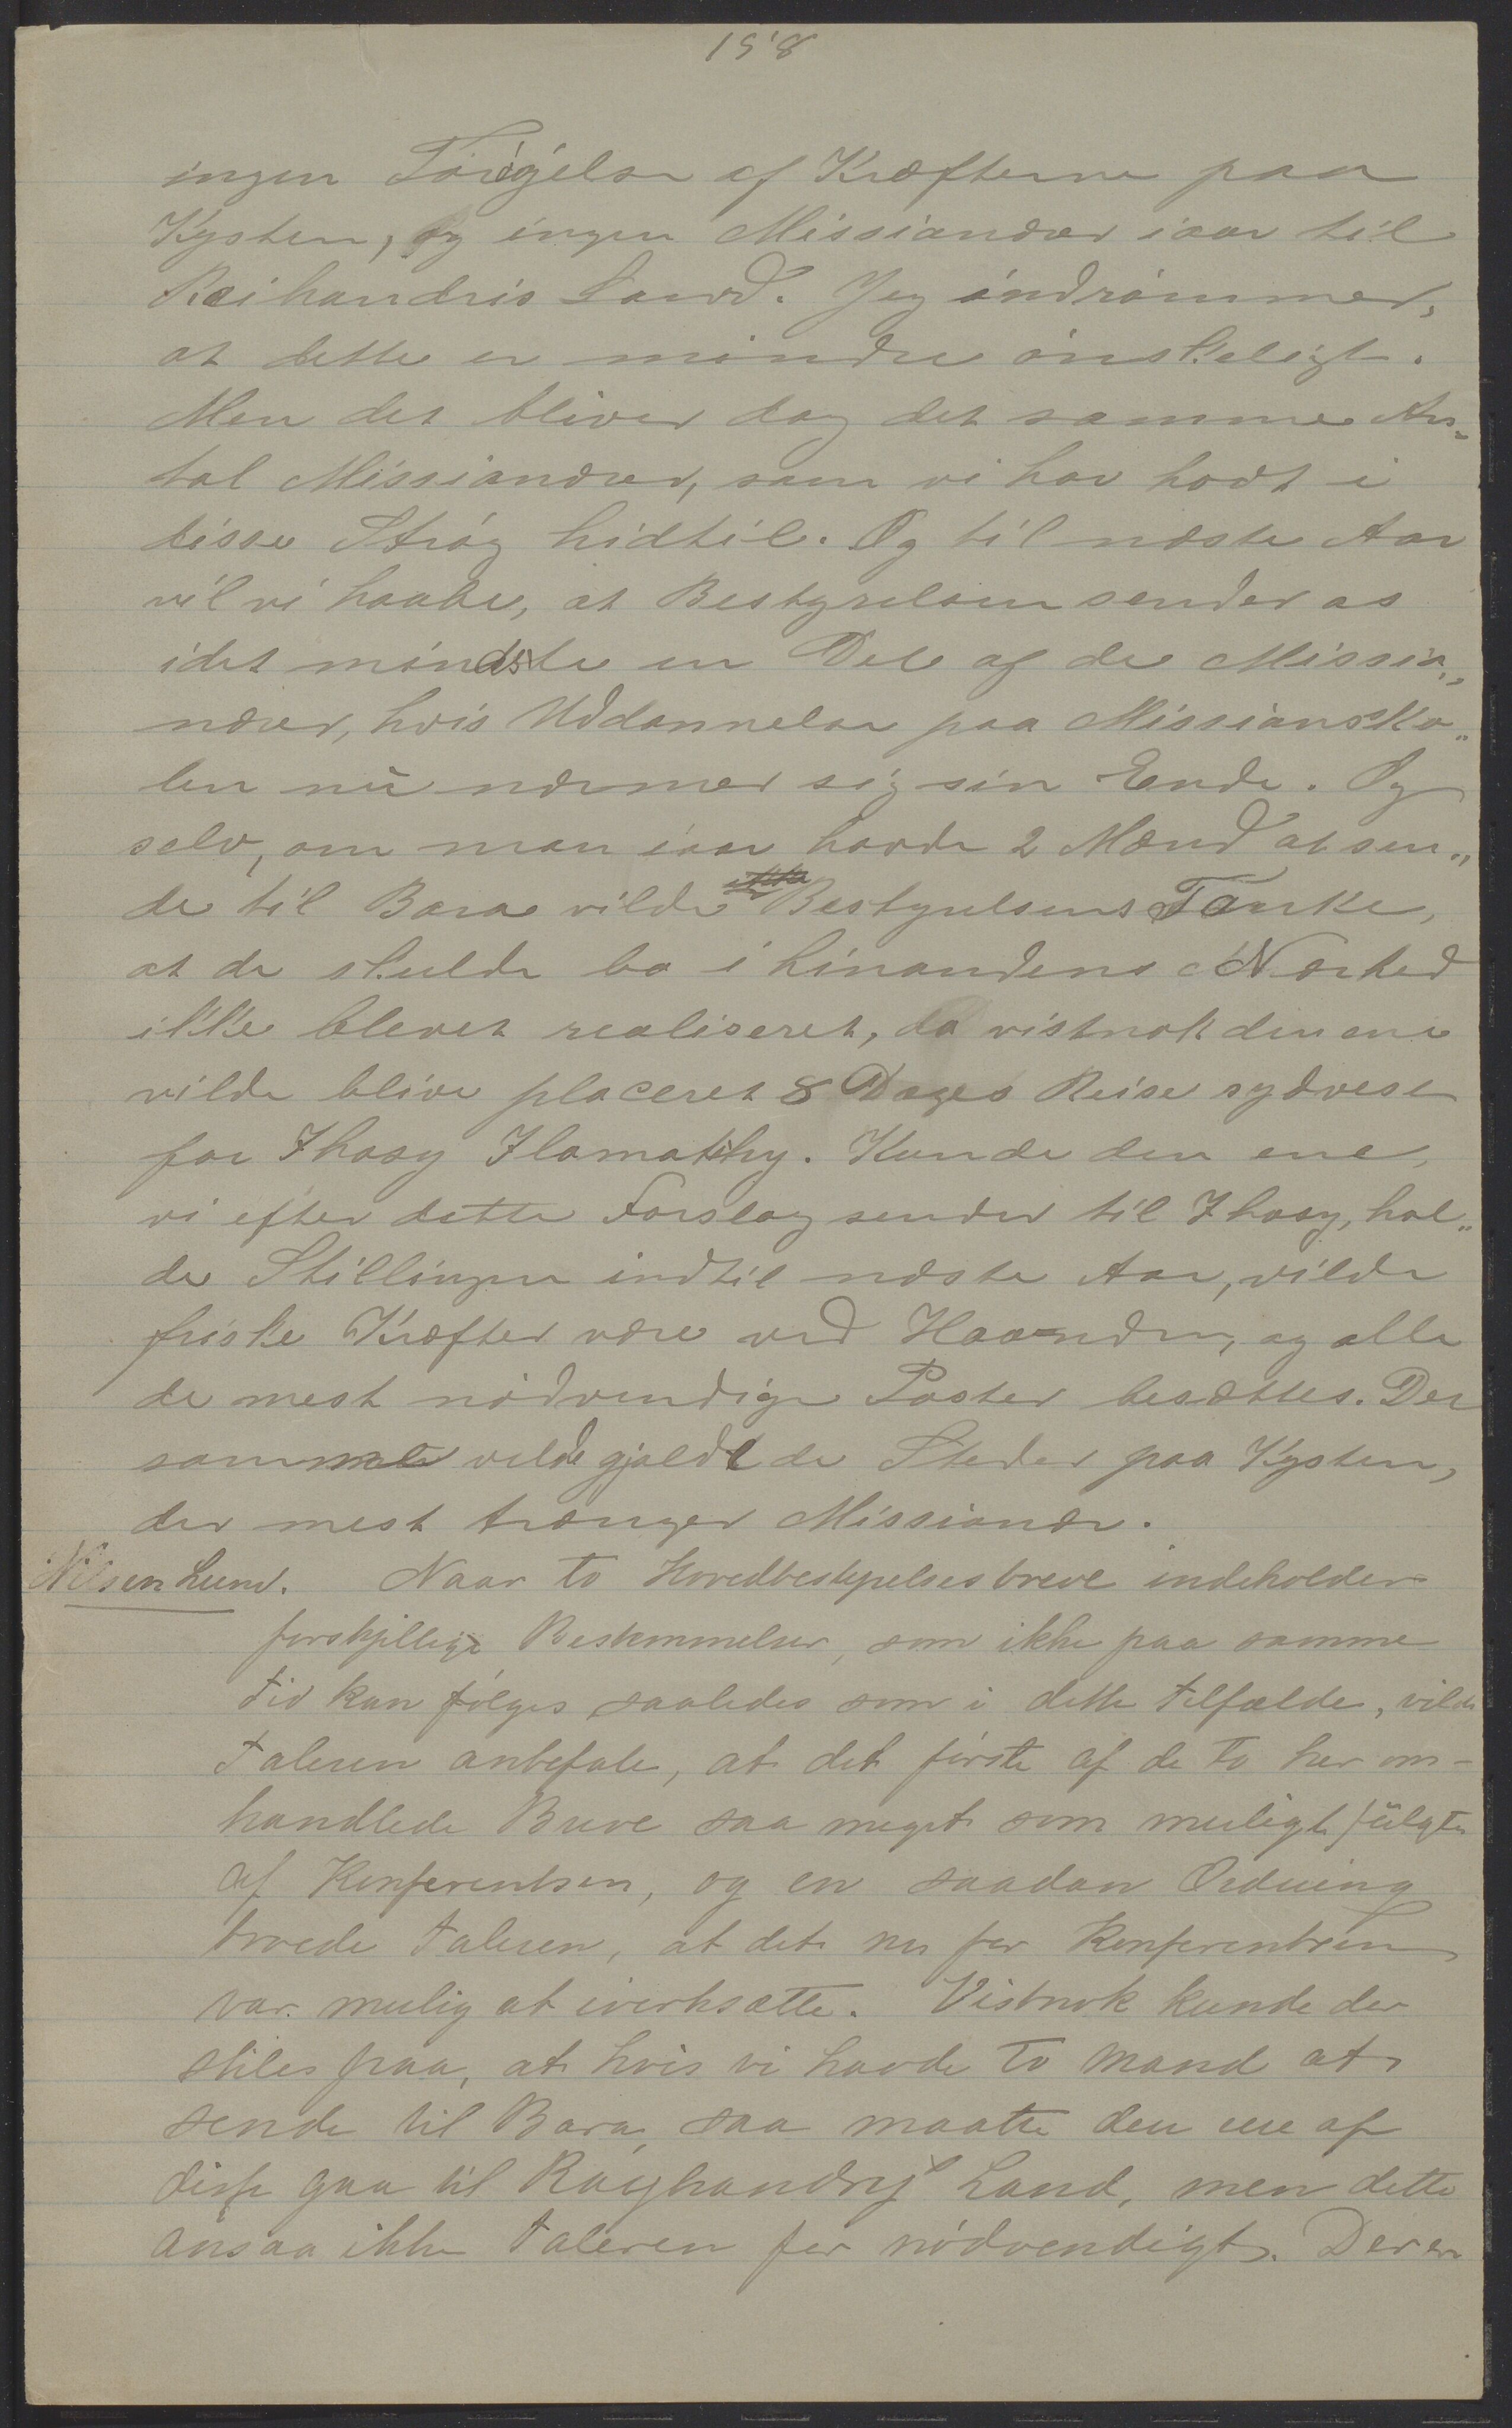 158
ingen Forøgelse af Kræfterne paa
Kysten, og ingen Missionær iaar til
Reihandris Land. Jeg indrømmer,
at dette er mindre ønskeligt.
Men det bliver dog det samme An-
tal Missionærer, som vi har havt i
disse Strøg hidtil. Og til næste Aar
vil vi haabe, at Bestyrelsen sender os
idet mindste en Del af de Missio„
nærer, hvis Uddannelse paa Missionssko„
len nu nærmer sig sin Ende. Og
selv, om man iaar havde 2 Mænd at sen„
de til Bara vilde Bestyrelsens Tanke,
at de skulde bo i hinandens Nærhed
ikke blevet realiseret, da vistnok den ene
vilde blive placeret 8 Dages Reise sydvest
for Ihosy Ilamatihy. Kunde den ene,
vi efter dette Forslag sender til Ihosy, hol„
de Stillingen indtil næste Aar, vilde
friske Kræfter være ved Haanden, og alle
de mest nødvendige Poster besættes. Det
samme vilde gjælde de Steder paa Kysten,
der mest trænger Missionær.
Nilsen Lund. Naar to Hovedbestyrelsesbreve indeholder
forskjellige Bestemmelser, som ikke paa samme
tid kan følges saaledes som i dette tilfælde, vilde
taleren anbefale, at det første af de to her om-
handlede Breve saa meget som muligt fulgtes
af Konferentsen, og en saadan Ordning
troede taleren, at det nu for Konferentsen
var mulig at iverksætte. Vistnok kunde der
stiles paa, at hvis vi havde to mand at
sende til Bara, saa maatte den ene af
disse gaa til Rayhandrys Land, men dette
ansaa ikke taleren for nødvendigt. Der er